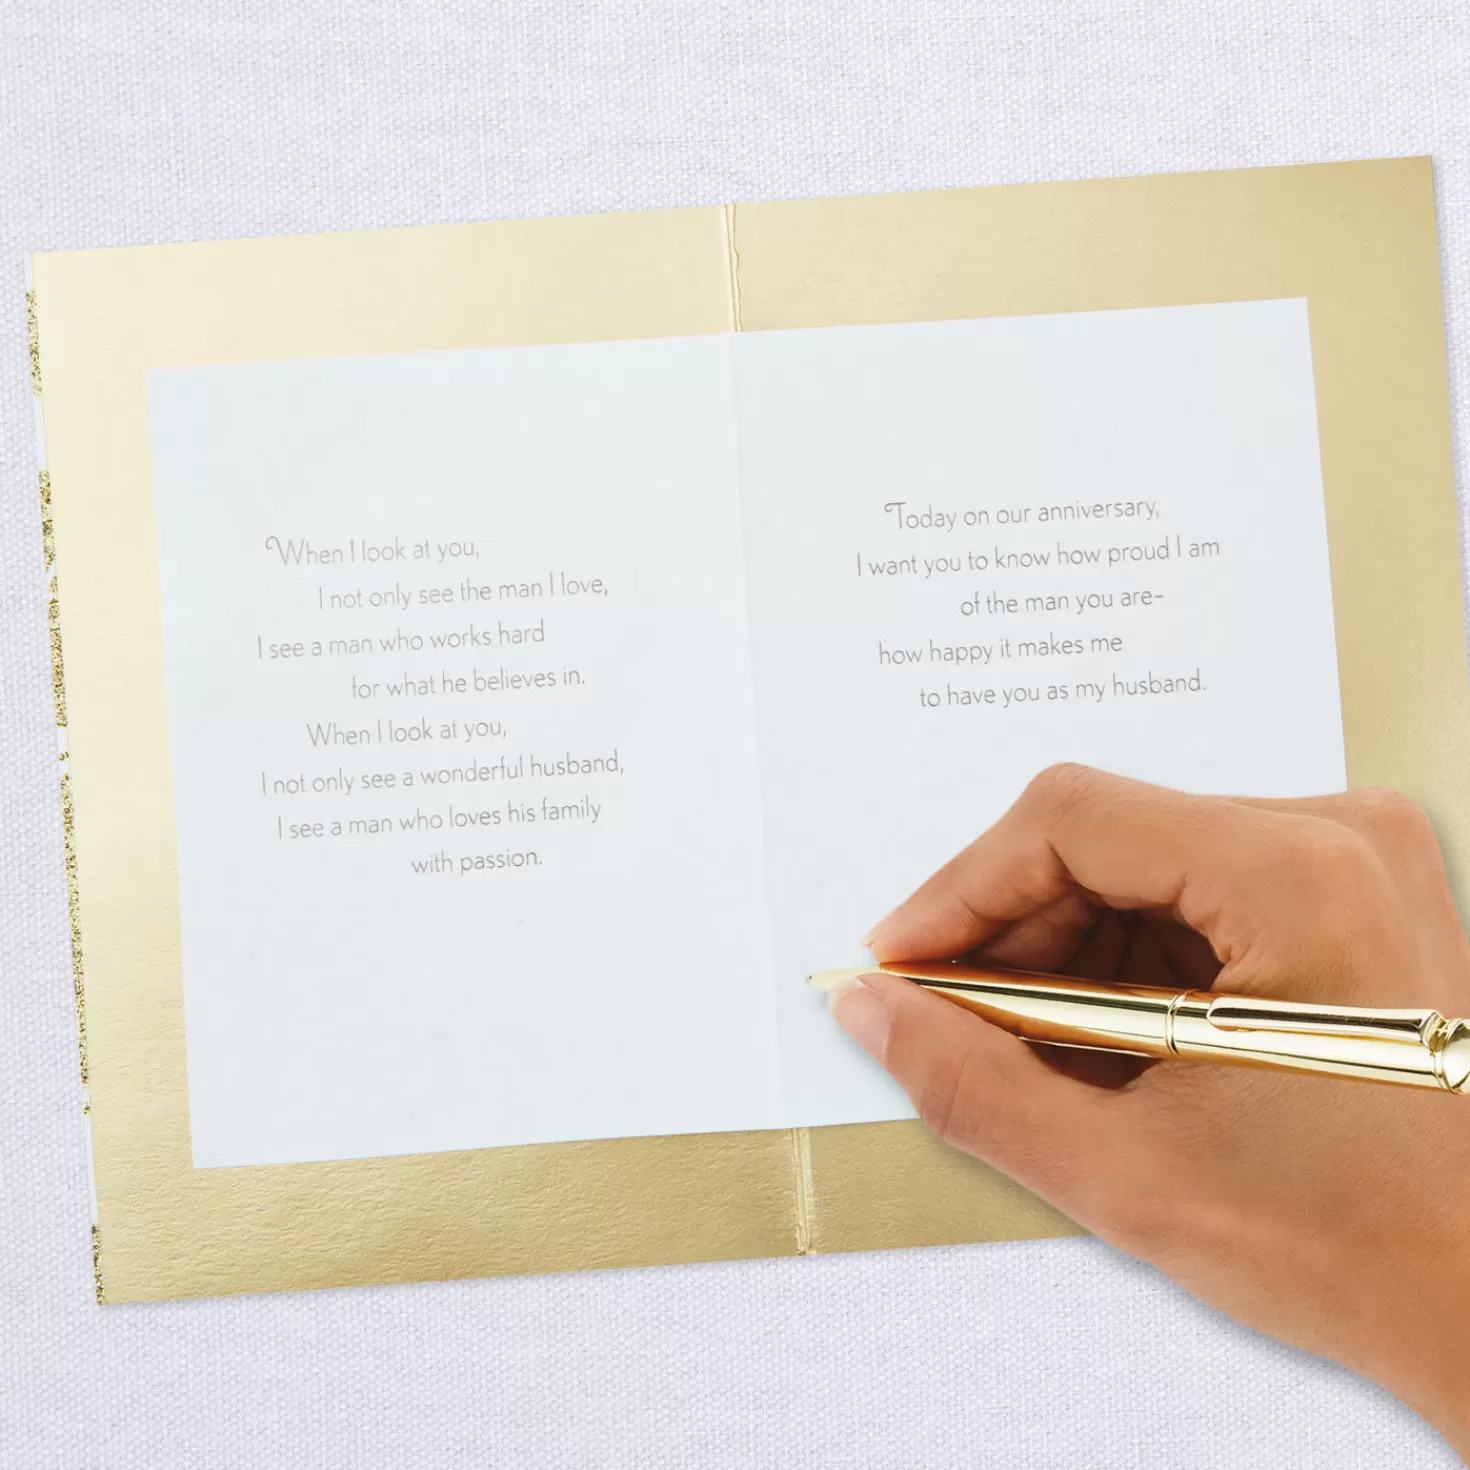 When I look at you,
I not only see the man I love,
I see a man who works hard
for what he believes in.
When I look at you,
I not only see a wonderful husband,
I see a man who loves his family
with passion.
Today on our anniversary,
I want you to know how proud I am
of the man you are–
how happy it makes me
to have you as my husband.